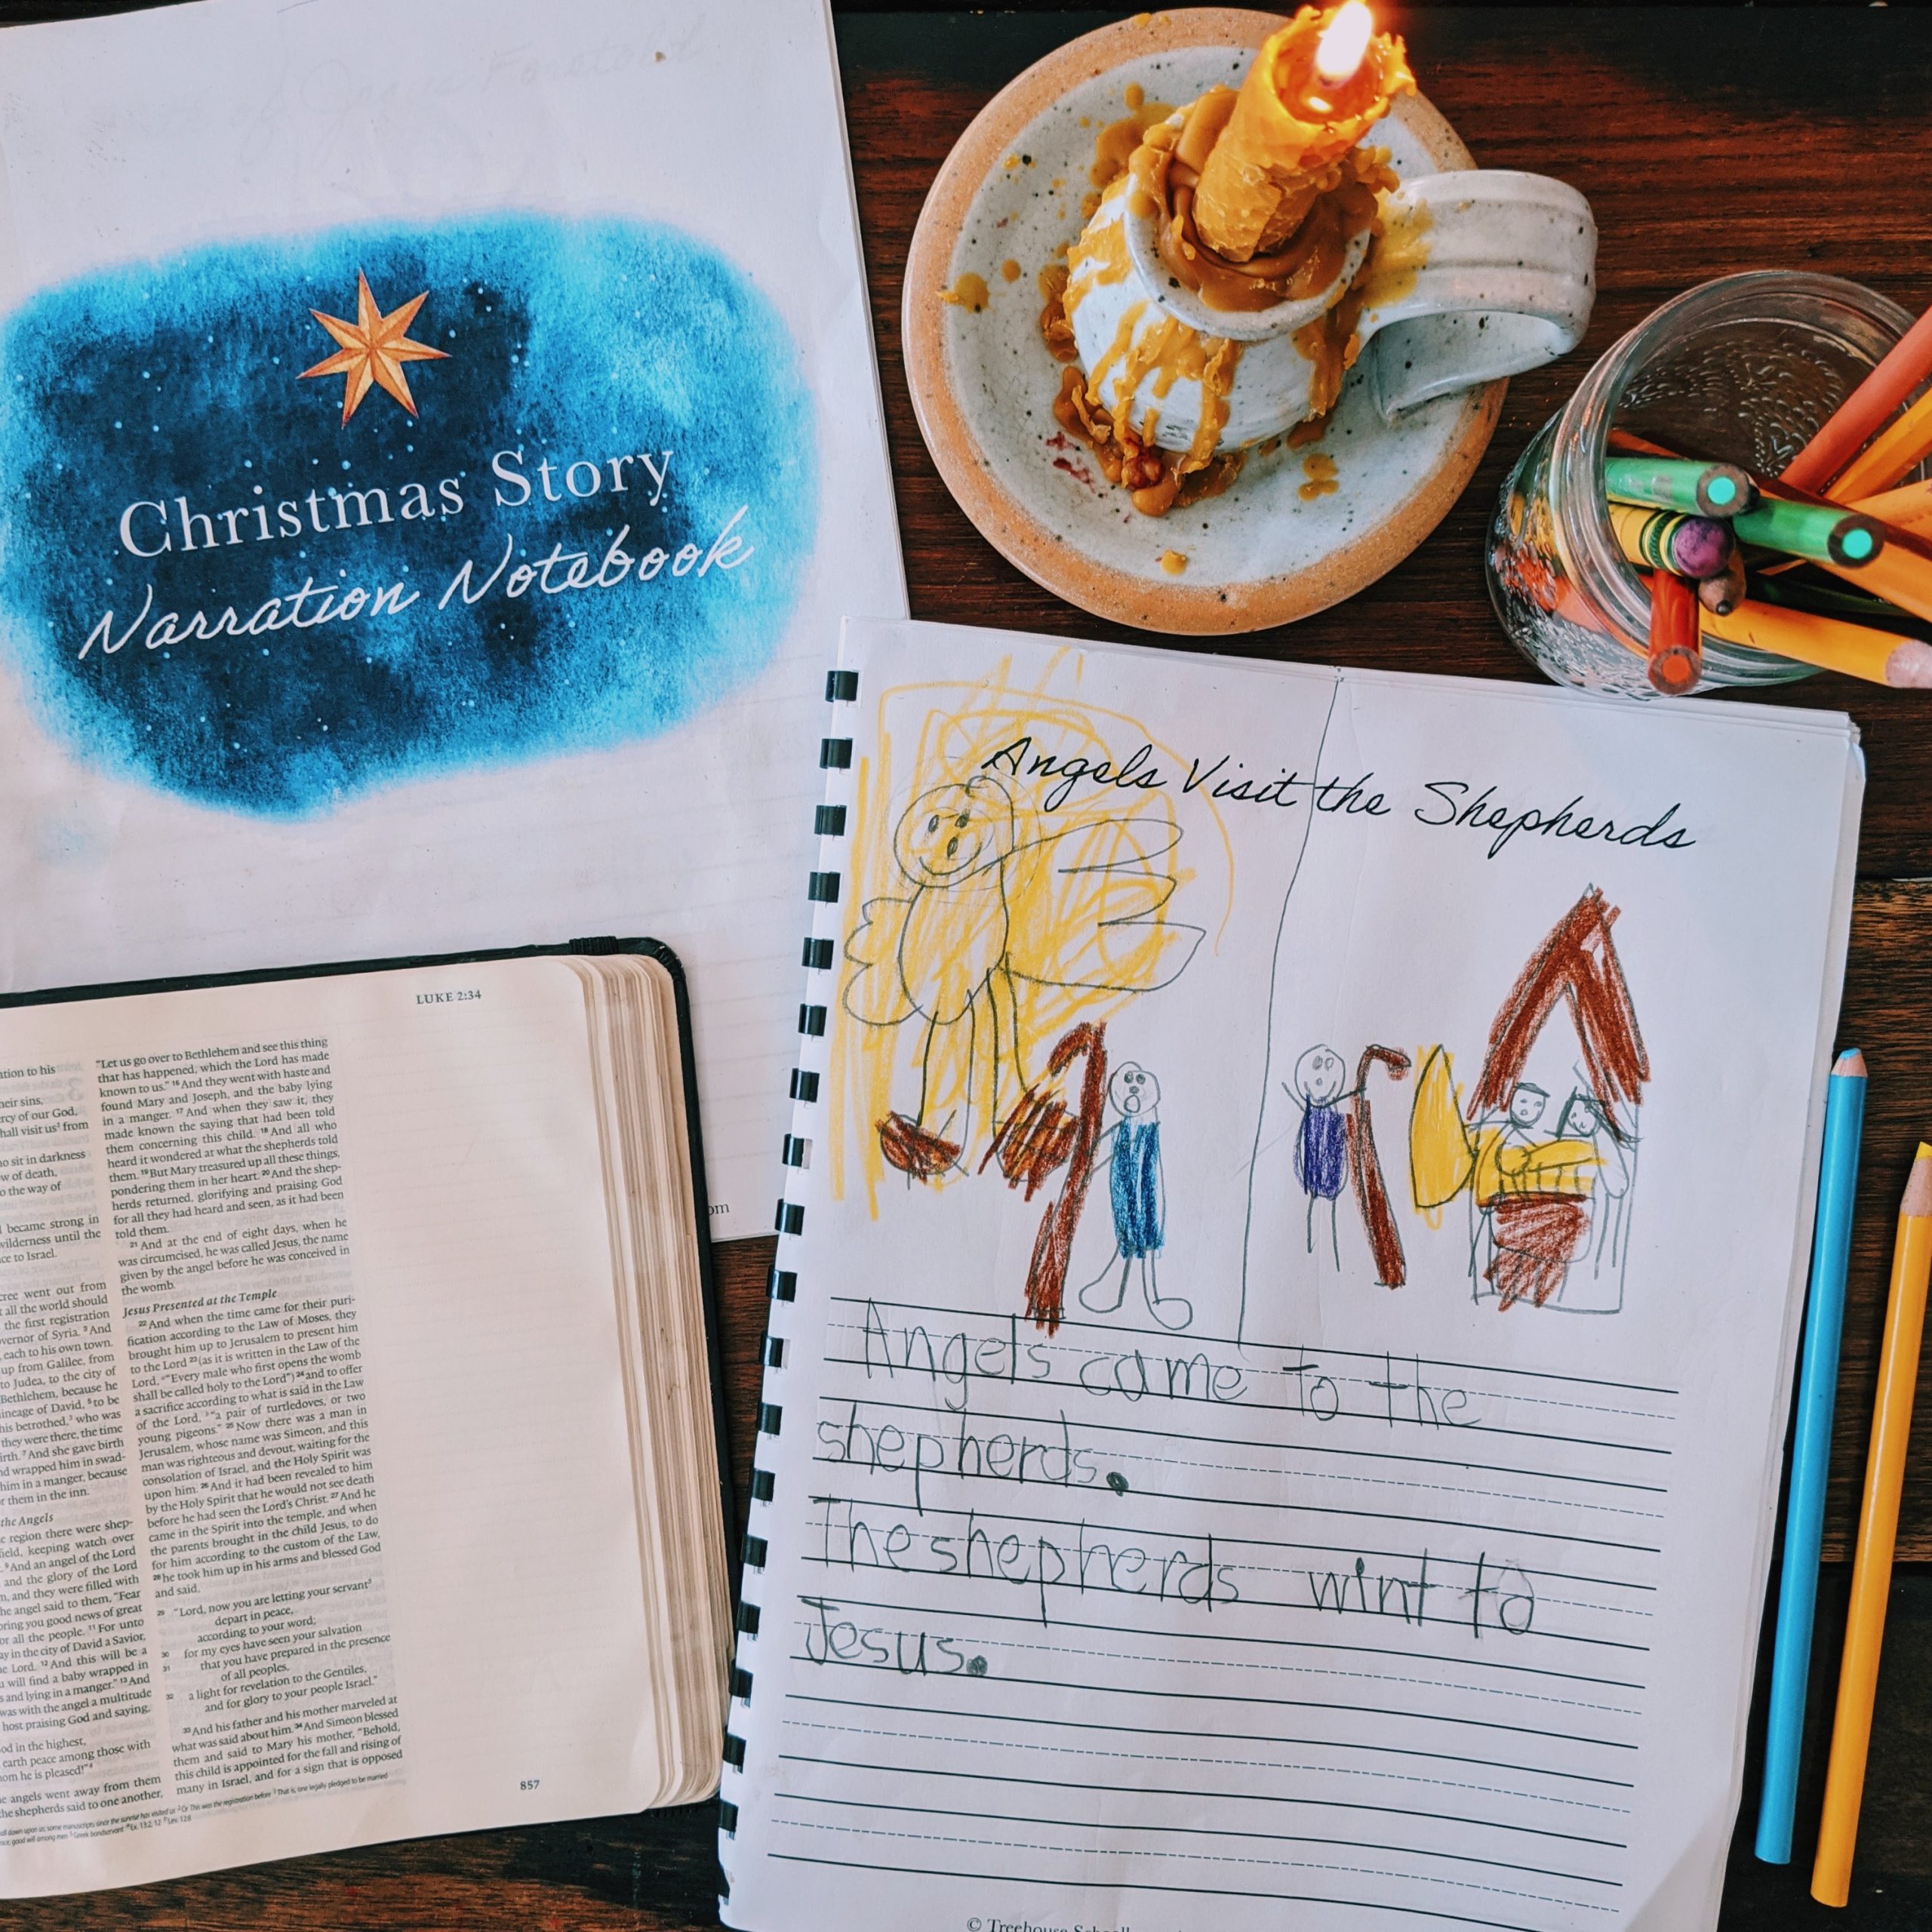 Christmas Story
Narration Notebook
Angels Visit the Shepherds
Angels came to the
shepherds.
The shepherds wint to
Jesus.
© Treehouse
om
LUKE 2:34
ation to his
heir sins,
ercy of our God,
hall visit us from
ho sit in darkness
w of death,
o the way of
l became strong in
wilderness until the
ce to Israel.
cree went out from
t all the world should
the first registration
vernor of Syria. 3 And
, each to his own town.
up from Galilee, from
to Judea, to the city of
Bethlehem, because he
lineage of David, 5 to be
his betrothed, who was
they were there, the time
irth. 7 And she gave birth
nd wrapped him in swad-
him in a manger, because
r them in the inn.
the Angels
e region there were shep-
field, keeping watch over
. 9 And an angel of the Lord
and the glory of the Lord
m, and they were filled with
he angel said to them, “Fear
bring you good news of great
or all the people. 11 For unto
ay in the city of David a Savior,
he Lord. 12 And this will be a
u will find a baby wrapped in
s and lying in a manger.” 13 And
was with the angel a multitude
host praising God and saying,
od in the highest,
earth peace among those with
hom he is pleased!”
e angels went away from them
the shepherds said to one another,
“Let us go over to Bethlehem and see this thing
that has happened, which the Lord has made
known to us.” 16 And they went with haste and
found Mary and Joseph, and the baby lying
in a manger. 17 And when they saw it, they
made known the saying that had been told
them concerning this child. 18 And all who
heard it wondered at what the shepherds told
them. 19 But Mary treasured up all these things,
pondering them in her heart. 20 And the shep-
herds returned, glorifying and praising God
for all they had heard and seen, as it had been
told them.
21 And at the end of eight days, when he
was circumcised, he was called Jesus, the name
given by the angel before he was conceived in
the womb.
Jesus Presented at the Temple
22 And when the time came for their puri-
fication according to the Law of Moses, they
brought him up to Jerusalem to present him
to the Lord 23 (as it is written in the Law of the
Lord, “Every male who first opens the womb
shall be called holy to the Lord”) 24 and to offer
a sacrifice according to what is said in the Law
of the Lord, “a pair of turtledoves, or two
young pigeons.” 25 Now there was a man in
Jerusalem, whose name was Simeon, and this
man was righteous and devout, waiting for the
consolation of Israel, and the Holy Spirit was
upon him. 26 And it had been revealed to him
by the Holy Spirit that he would not see death
before he had seen the Lord's Christ. 27 And he
came in the Spirit into the temple, and when
the parents brought in the child Jesus, to do
for him according to the custom of the Law,
28 he took him up in his arms and blessed God
and said,
29 “Lord, now you are letting your servant
depart in peace,
according to your word;
30 for my eyes have seen your salvation
31 that you have prepared in the presence
of all peoples,
32 a light for revelation to the Gentiles,
and for glory to your people Israel.”
33 And his father and his mother marveled at
what was said about him. 34 And Simeon blessed
them and said to Mary his mother, “Behold,
this child is appointed for the fall and rising of
many in Israel, and for a sign that is opposed
857